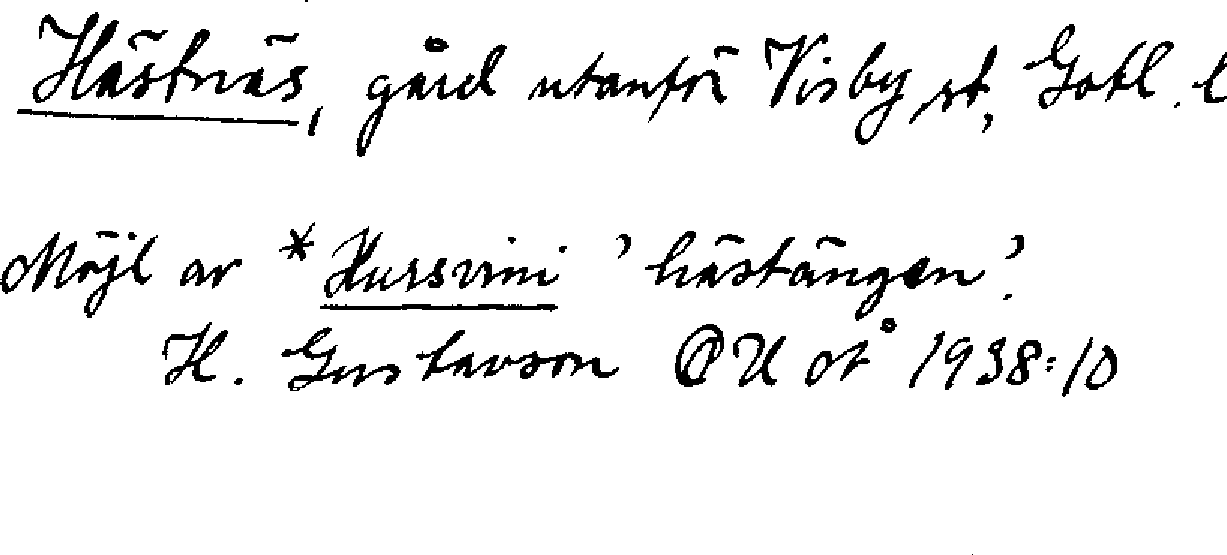 Hästnäs, gård utanför Visby st, Gotl. l
Möjl av *Hursvini 'hästängen'.
H. Gustavson OU ot° 1938:10